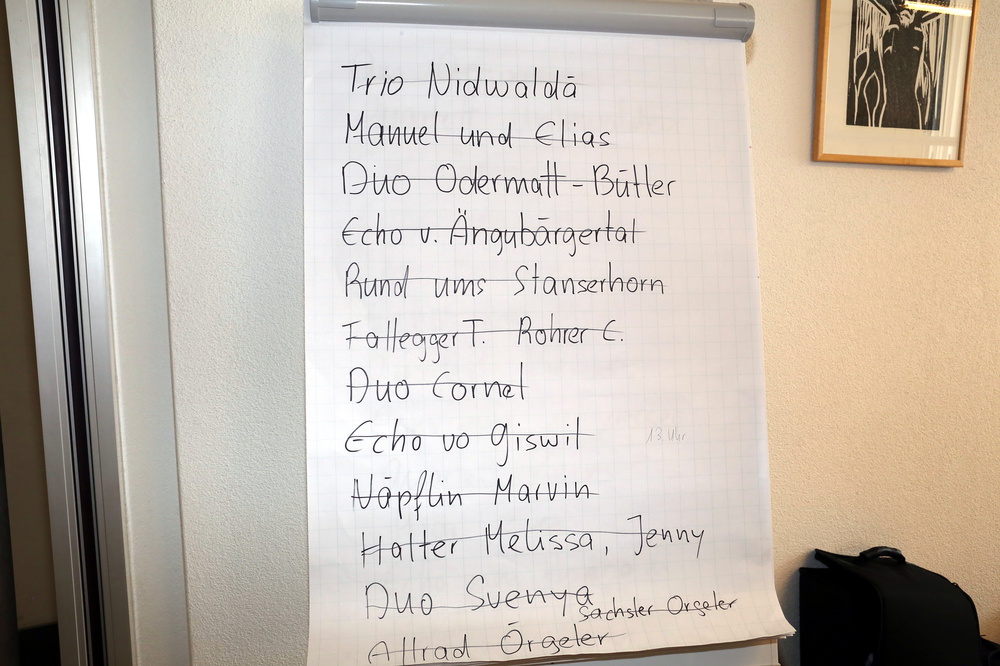 Trio Nidwaldä
Manuel und Elias
Duo Odermatt - Bütler
Echo v. Ängubärgertal
Rund ums Stanserhorn
Fallegger T. Rohrer C.
Duo Cornel
Echo vo Giswil
13. Uhr
Näpflin Marvin
Halter Melissa, Jenny
Duo Svenya
Sachsler Örgeler
Allrad Örgeler